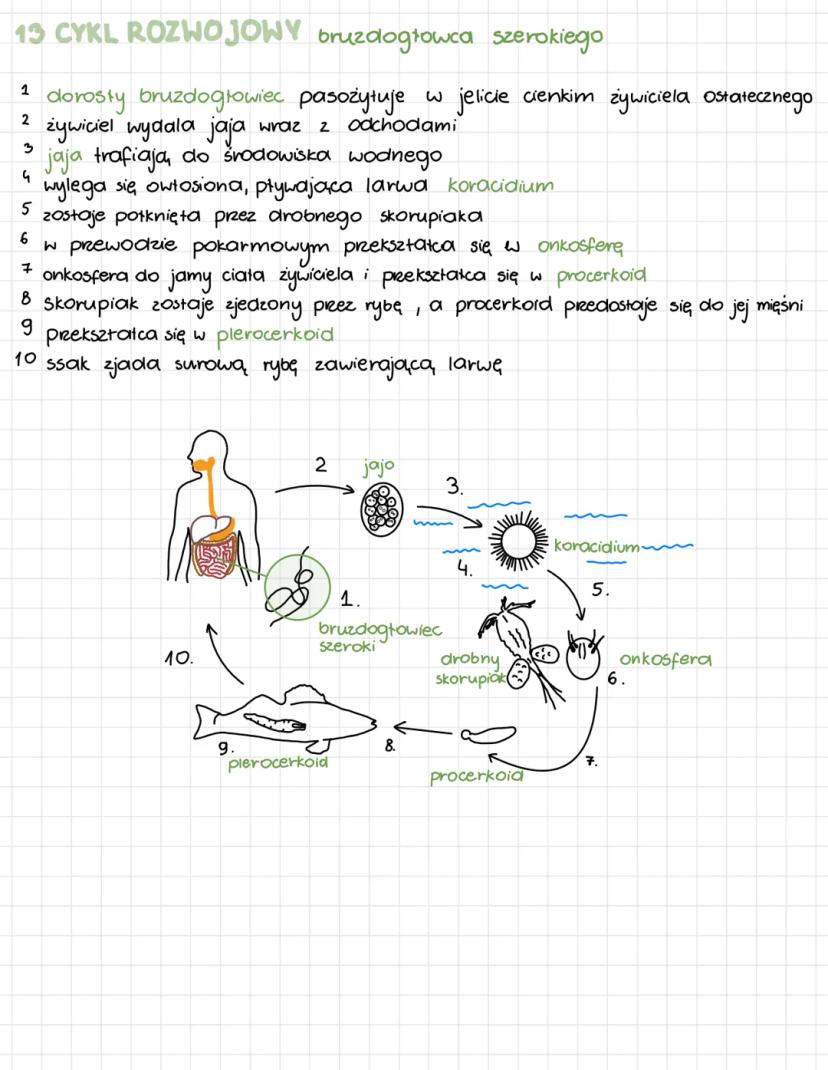 13 CYKL ROZWOJOWY bruzdogłowca szerokiego
1 dorosły bruzdogłowiec pasożytuje w jelicie cienkim żywiciela ostatecznego
2 żywiciel wydala jaja wraz z odchodami
3 jaja trafiają do środowiska wodnego
4 wylega się owłosiona, pływająca larwa koracidium
5 zostaje połknięta przez drobnego skorupiaka
6 w przewodzie pokarmowym przekształca się w onkosferę
7 onkosfera do jamy ciała żywiciela i przekształca się w procerkoid
8 skorupiak zostaje zjedzony przez rybę, a procerkoid przedostaje się do jej mięśni
9 przekształca się w plerocerkoid
10 ssak zjada surową rybę zawierającą larwę
2 jajo
3.
koracidium
4.
5.
1.
bruzdogłowiec
szeroki
drobny
skorupiak
onkosfera
6.
10.
9.
plerocerkoid
8.
7.
procerkoid